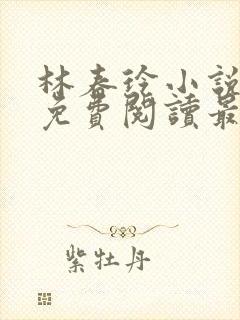 林春徐小說
免費閱讀最
紫牡丹